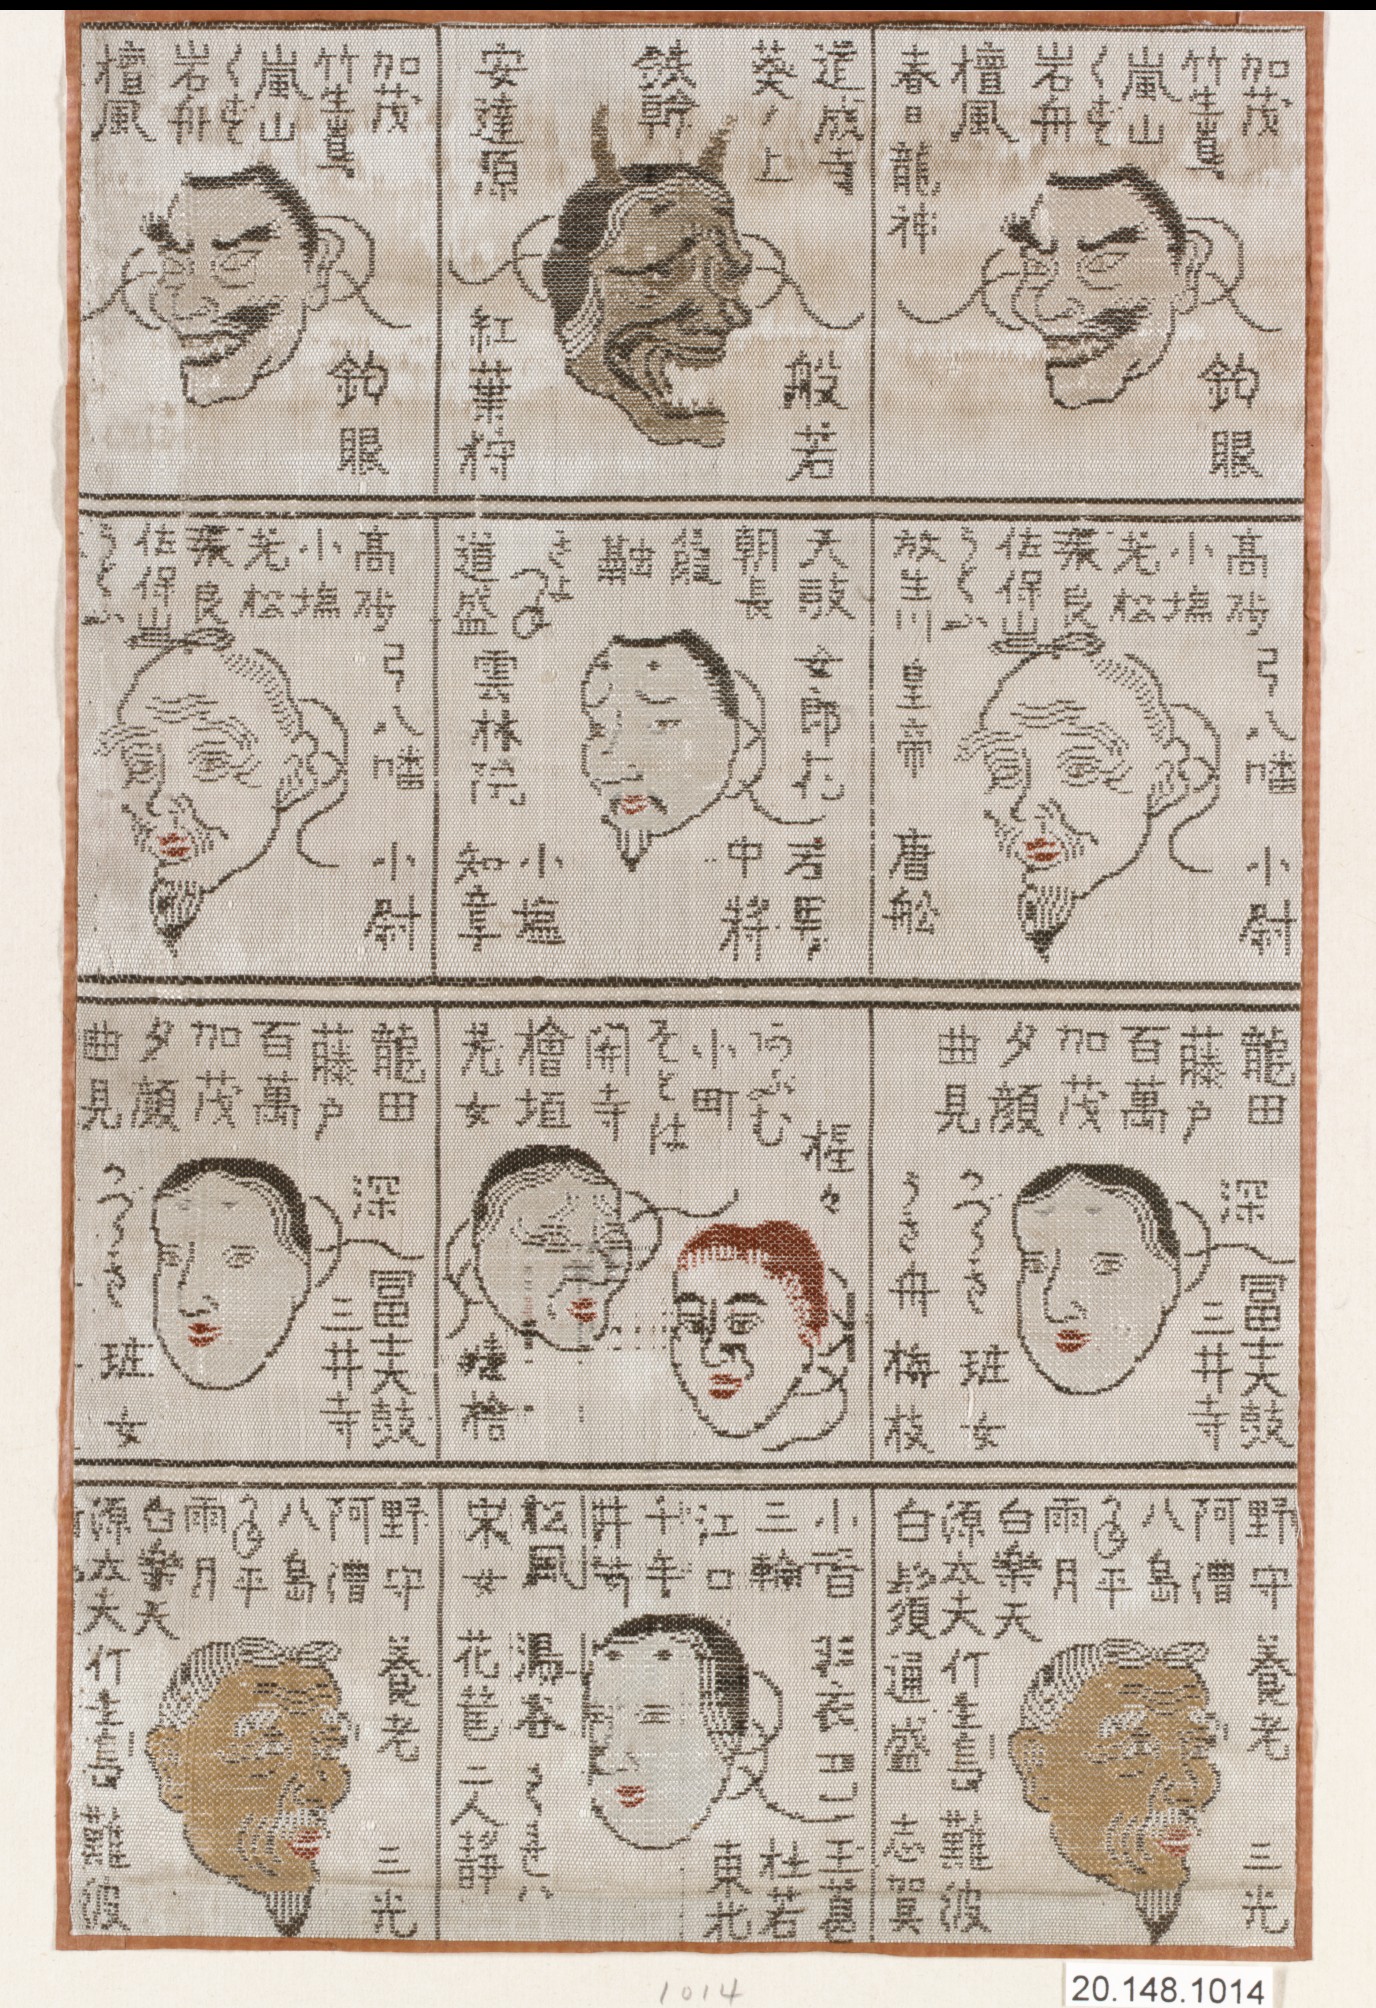 加茂
竹生島
嵐山
岩舟
檀風
春日龍神
釣眼
道成寺
葵ノ上
鉄輪
安達原
紅葉狩
般若
加茂
竹生島
嵐山
岩舟
檀風
釣眼
高砂
小塩
老松
佐保山
放生川
弓八幡
皇帝
唐舩
小尉
天鼓
朝長
龍
融
きよつね
道盛
女郎花
雲林院
小塩
知章
中将
高砂
小塩
老松
佐保山
弓八幡
小尉
龍田
藤戸
百萬
加茂
夕顔
曲見
深
冨士太鼓
三井寺
班女
うき舟
梅枝
小町
関寺
檜垣
老女
猩々
龍田
藤戸
百萬
加茂
夕顔
曲見
深
冨士太鼓
三井寺
班女
野守
阿漕
八島
雨月
白楽天
源太夫
白鬚
養老
竹生島
通盛
難波
志賀
三光
小督
三輪
江口
千手
井筒
松風
采女
湯谷
花筐
二人静
玉葛
杜若
東北
野守
阿漕
八島
雨月
白楽天
源太夫
養老
竹生島
難波
三光
1014
20.148.1014